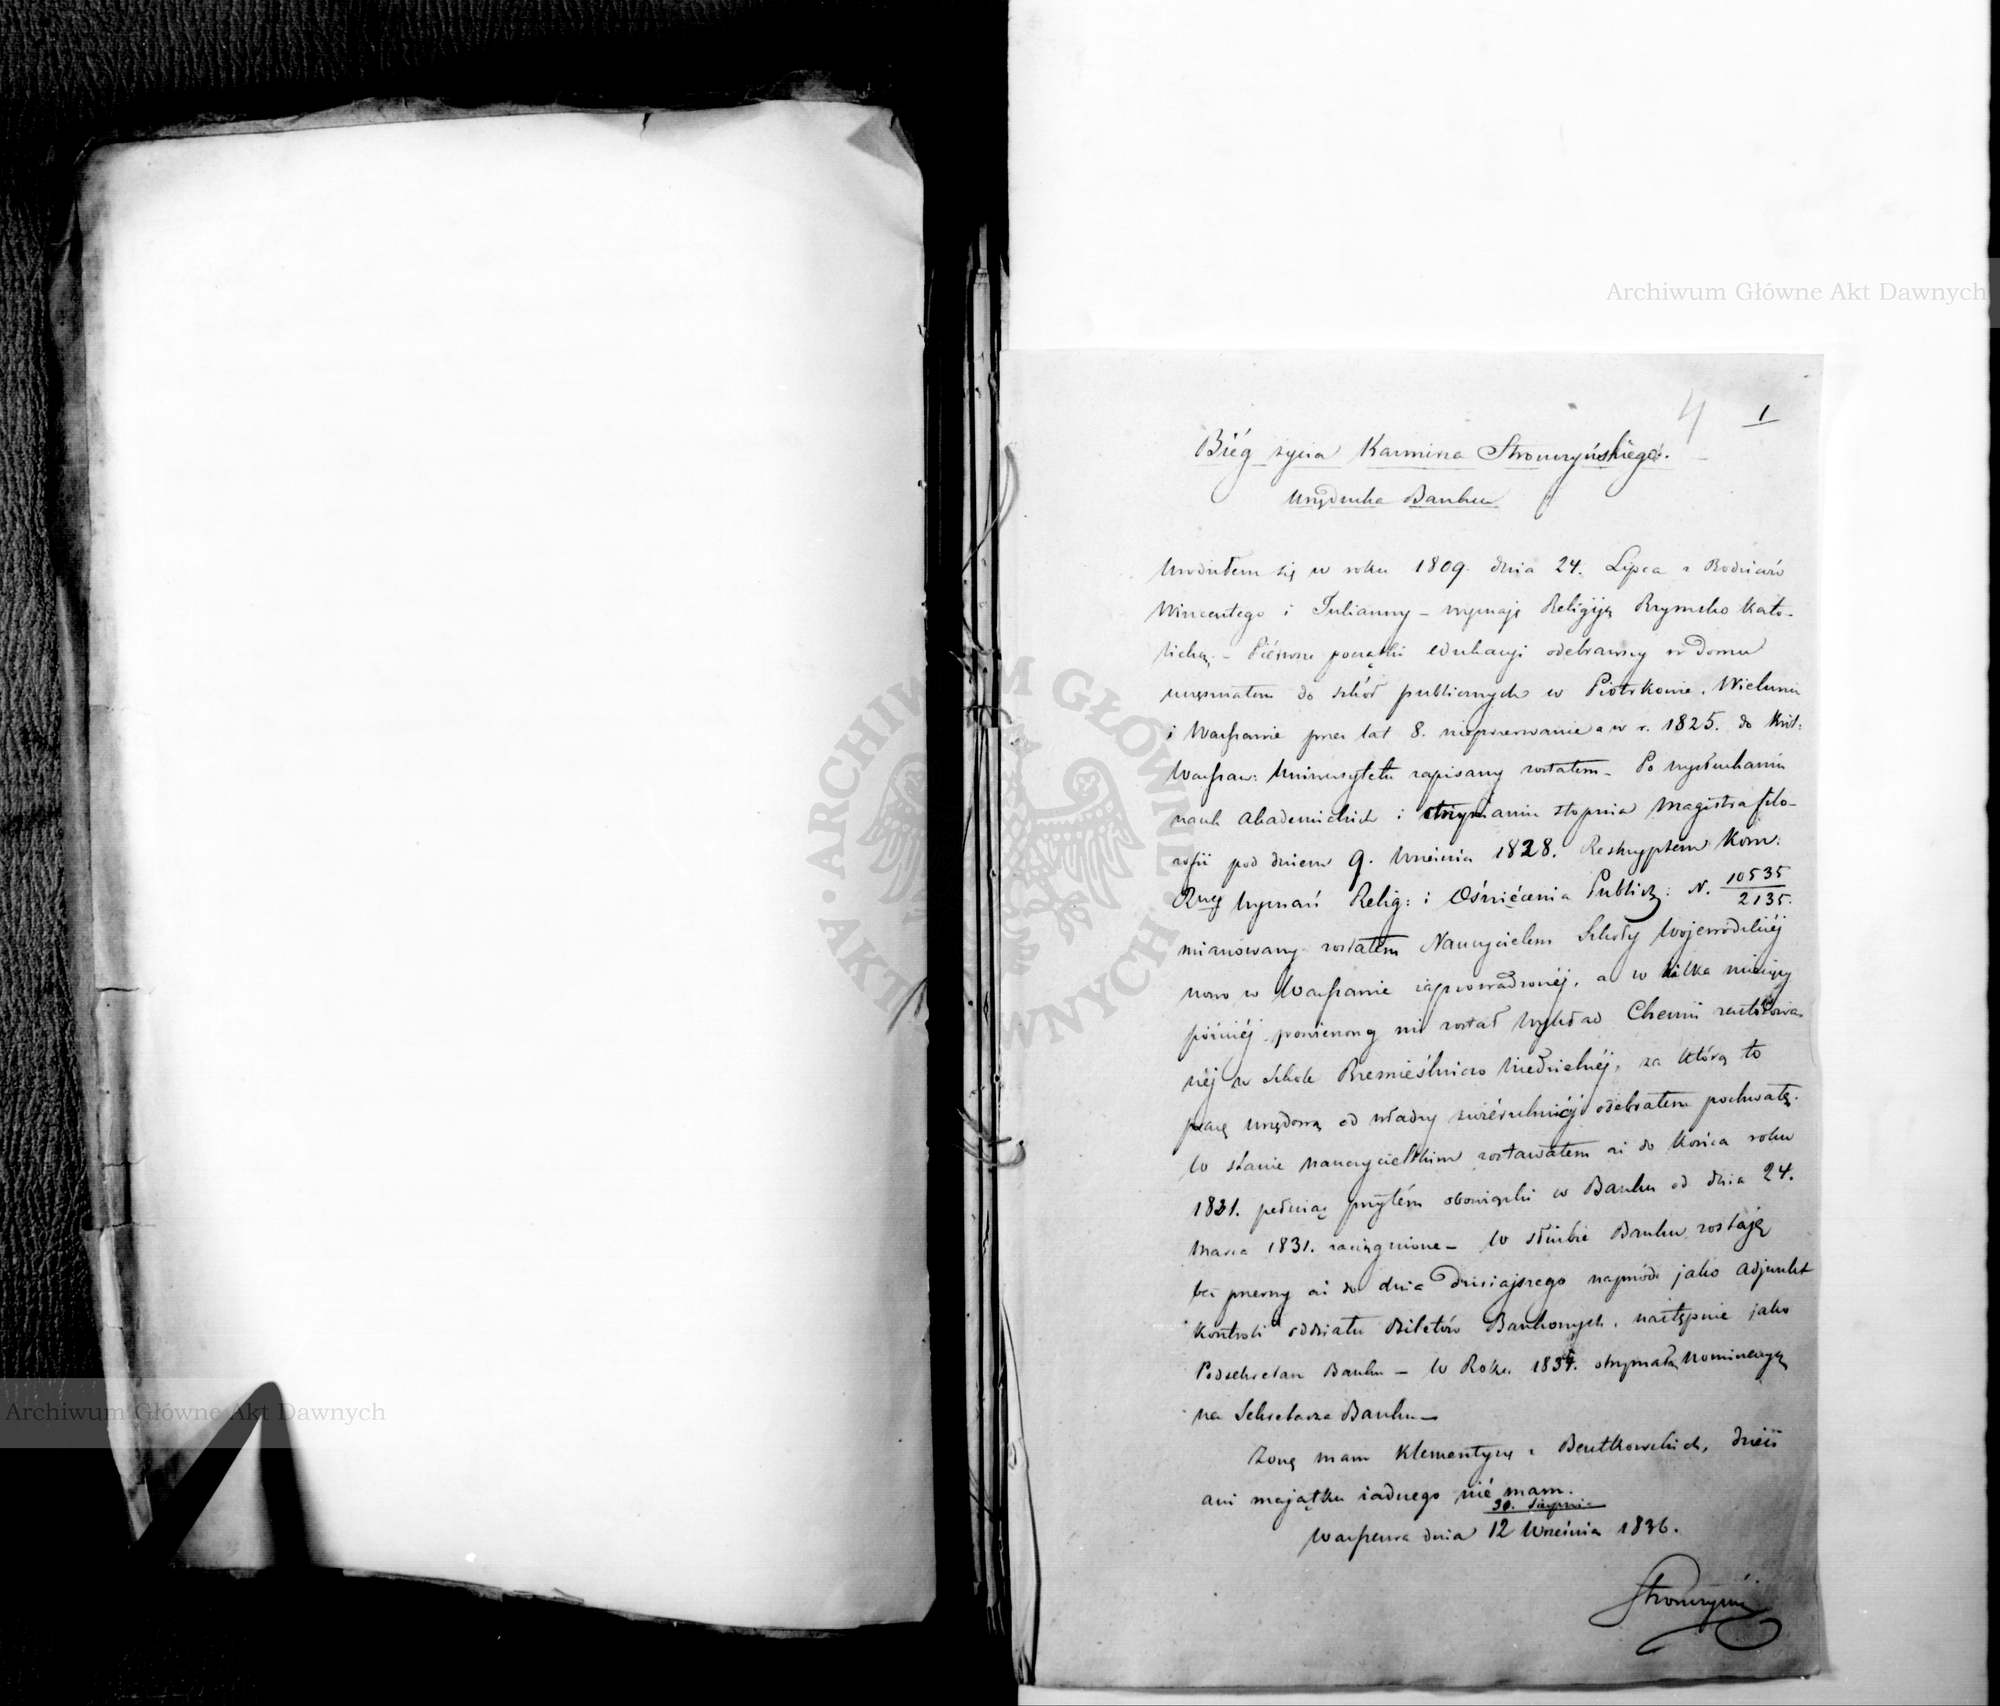 4 1
Biég życia Kazimirza Stronczyńskiego.
Urzędnika Banku
Urodziłem się w roku 1809. dnia 24. Lipca z Rodziców
Wincentego i Julianny – wyznaję Religiją Rzymsko Kato-
licką. – Piérwsze początki edukacyi odebrawszy w domu
uczęszczałem do szkół publicznych w Piotrkowie, Wieluniu
i Warszawie przez lat 8. nieprzerwanie a w r. 1825. do Król:
Warszaw: Uniwersytetu zapisany zostałem – Po wysłuchaniu
nauk akademickich i otrzymaniu stopnia Magistra filo-
zofii pod dniem 9. Września 1828. Reskryptem Kom:
Rząd Wyznań Relig: i Oświécenia Publicz: N. 10535/2135.
mianowany zostałem Nauczycielem Szkoły Wojewódzkiéj
nowo w Warszawie zaprowadzonéj, a w kilka miesięcy
późniéj powierzony mi został wykład Chemii zastósowa-
néj w szkole Rzemieślniczo Niedzielnéj, za którą to
pracę urzędową od władzy zwiérzchniéj odebrałem pochwałę.
W stanie nauczycielskim zostawałem aż do końca roku
1831. pełniąc przytém obowiązki w Banku od dnia 24.
Marca 1831. zaciągnione – W służbie Banku zostaję
bez przerwy aż do dnia dzisiajszego naprzód jako adjunkt
Kontroli oddziału Biletów Bankowych, następnie jako
Podsekretarz Banku – W Roku 1834. otrzymałem nominacyą
na Sekretarza Banku –
Żonę mam Klementynę z Bentkowskich, dzieci
ani majątku żadnego nié mam.
30. Sierpnia
Warszawa dnia 12 Września 1836.
Stronczyński
Archiwum Główne Akt Dawnych
Archiwum Główne Akt Dawnych
ARCHIWUM GŁÓWNE AKT DAWNYCH